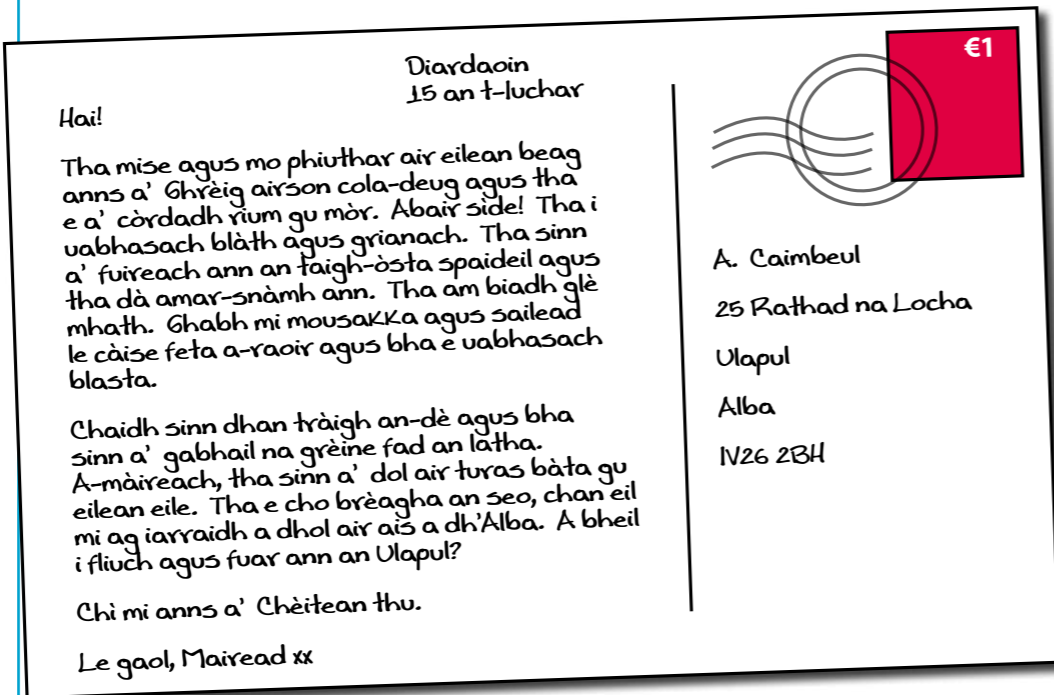 Diardaoin
15 an t-luchar
Hai!
Tha mise agus mo phiuthar air eilean beag
anns a' Ghrèig airson cola-deug agus tha
e a' còrdadh rium gu mòr. Abair side! Tha i
uabhasach blàth agus grianach. Tha sinn
a' fuireach ann an taigh-òsta spaideil agus
tha dà amar-snàmh ann. Tha am biadh glè
mhath. Ghabh mi mousakka agus sailead
le càise feta a-raoir agus bha e uabhasach
blasta.
Chaidh sinn dhan tràigh an-dè agus bha
sinn a' gabhail na grèine fad an latha.
A-màireach, tha sinn a' dol air turas bàta gu
eilean eile. Tha e cho brèagha an seo, chan eil
mi ag iarraidh a dhol air ais a dh'Alba. A bheil
i fliuch agus fuar ann an Ulapul?
Chì mi anns a' Chèitean thu.
Le gaol, Mairead xx
€1
A. Caimbeul
25 Rathad na Locha
Ulapul
Alba
IV26 2BH